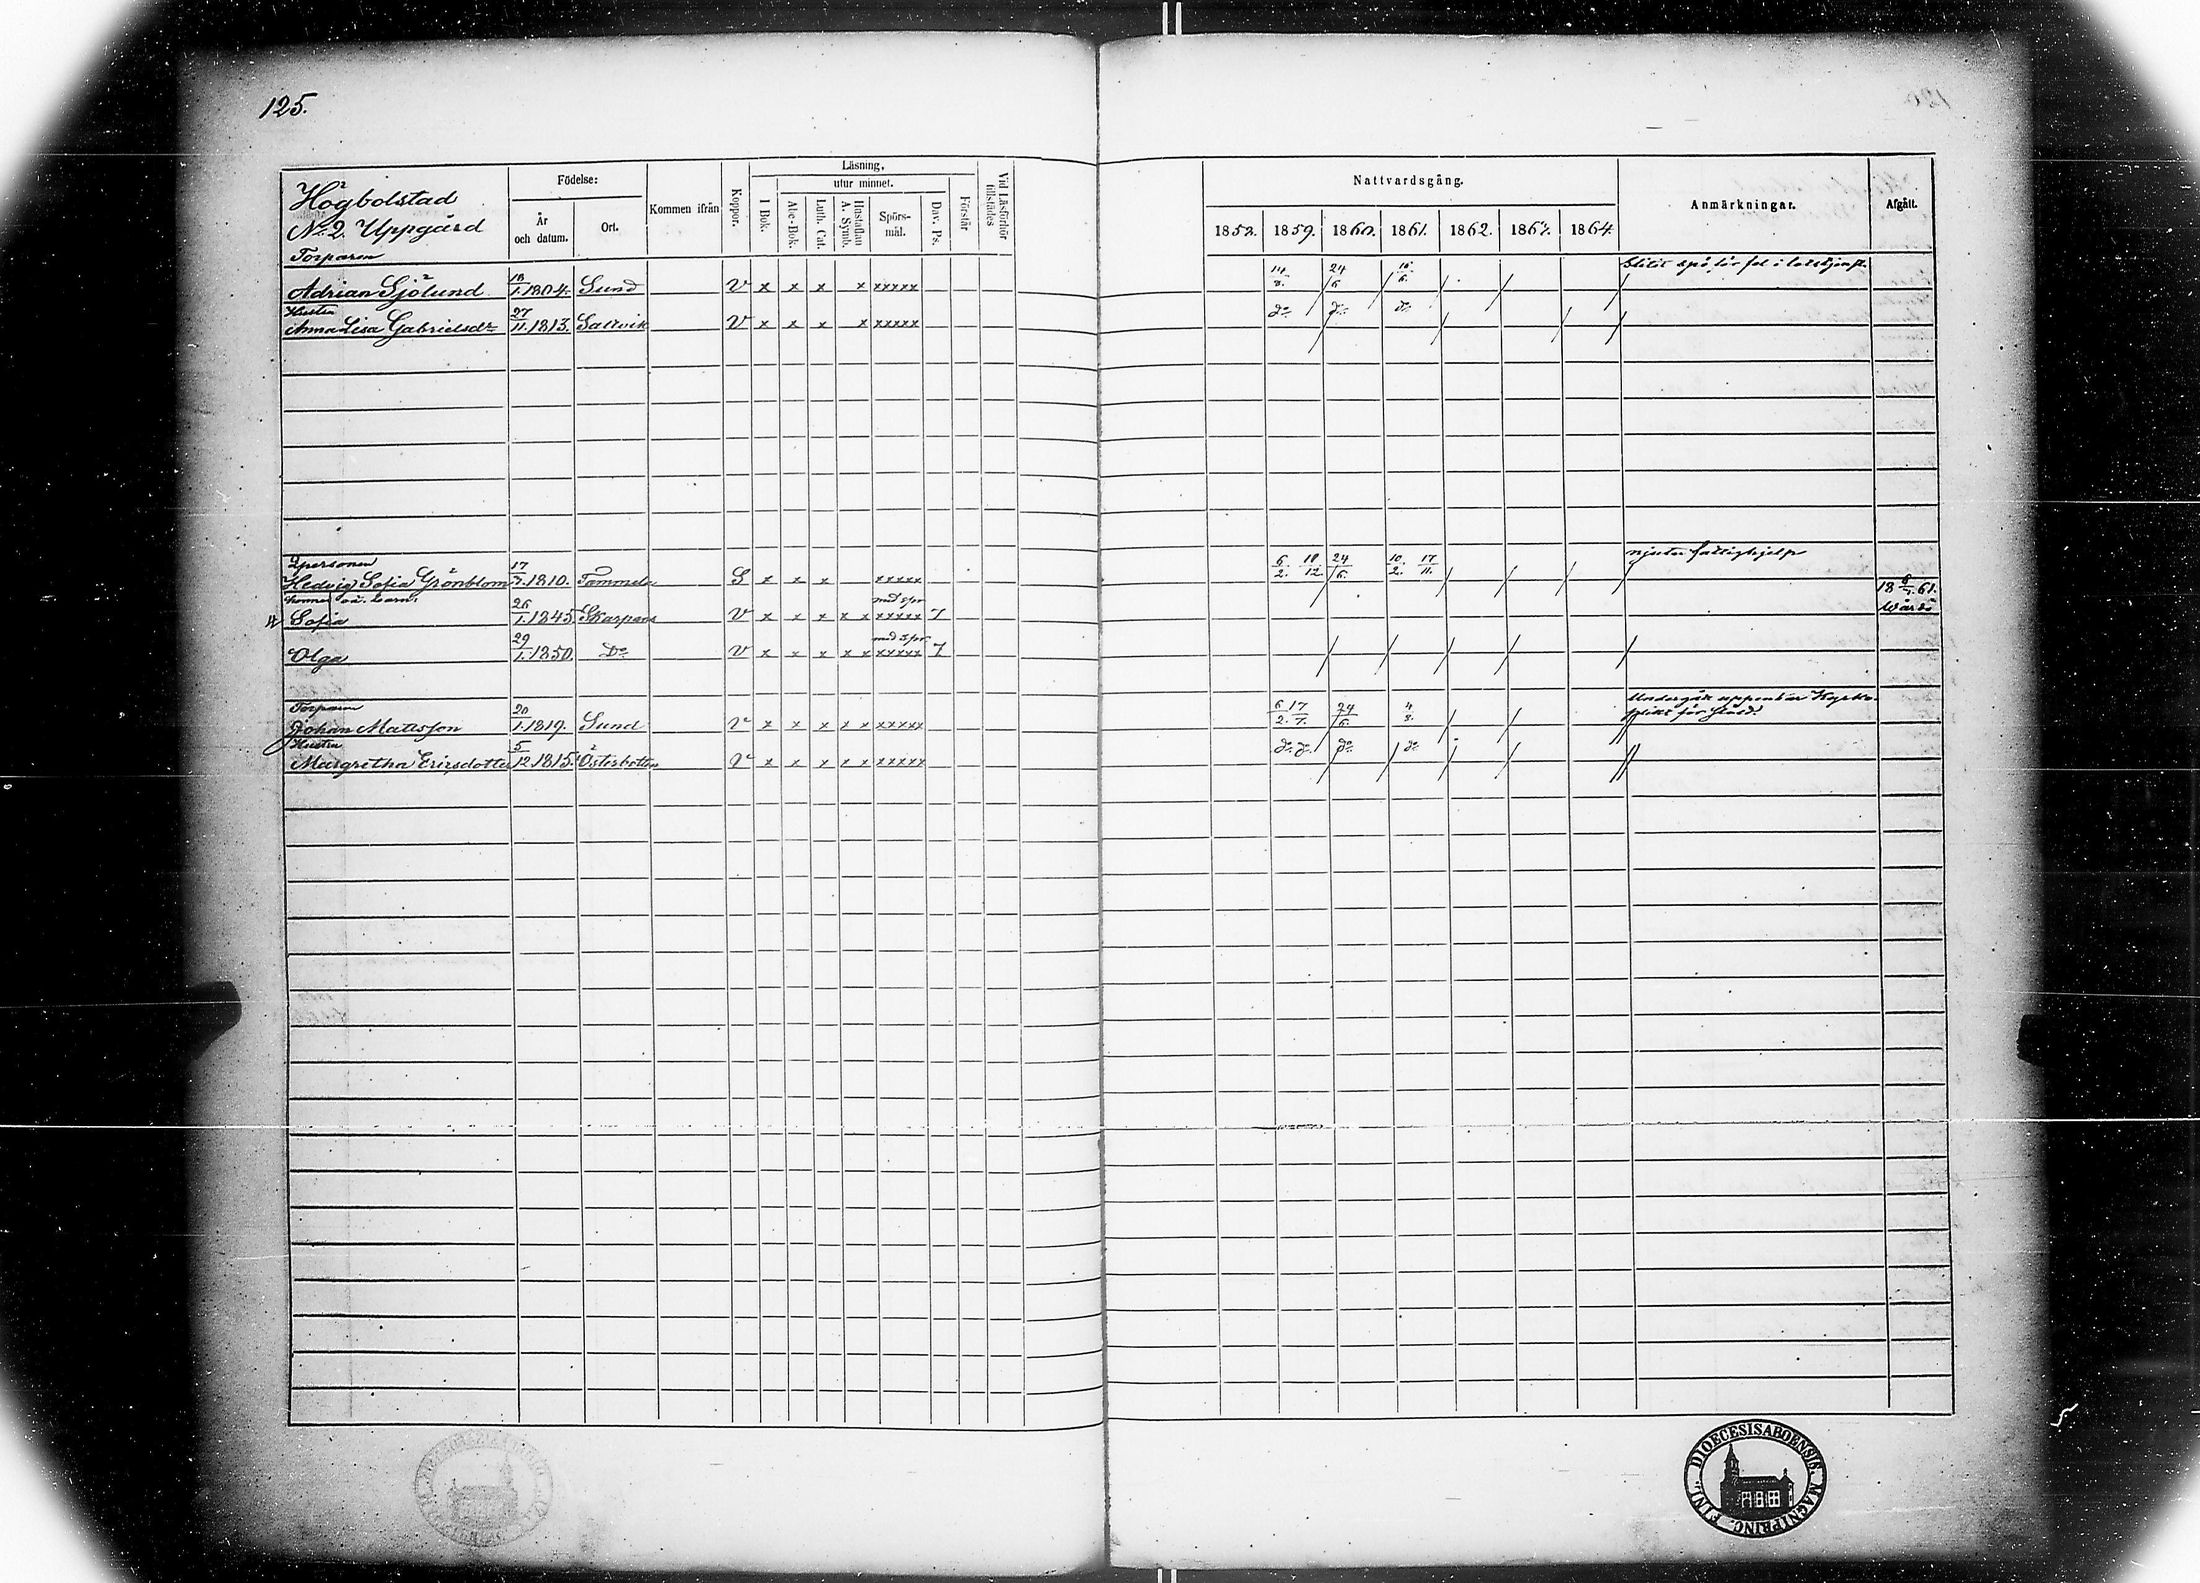 125.
Högbolstad
No 2. Uppgård
Födelse:
År och datum.
Ort.
Kommen ifrån
Koppor.
Läsning,
utur minnet.
I Bok.
Abc-Bok.
Luth. Cat.
Hustaflan A. Symb.
Spörsmål.
Dav. Ps.
Förstår
Vid Läsförhör tillstädes
Nattvardsgång.
1858. 1859. 1860. 1861. 1862. 1863. 1864
Anmärkningar.
Afgått.
Torparen
Adrian Sjölund 18/1. 1804. Sund V x x x x xxxxx 24/6
Hustru
Anna Lisa Gabrielsdr 27/11. 1813. Saltvik V x x x x xxxxx do do do
Hedvig Sofia Grönblom 17/7. 1810. Tammela S x x x xxxxx 6/2. 18/12. 24/6. 10/2. 17/11. njuter fattighjelp
Sofia 26/1. 1845 Skarpans V x x x x x xxxxx 7 61. Wårdö
Olga 29/1. 1850. Do V x x x x x xxxxx 7
Torparen
Johan Matsson 20/1. 1819. Sund V x x x x x xxxxx 6/2. 17/7. 24/6. 4/8. Undergått uppenbar Kyrkoplikt för stöld.
Hustru
Margretha Ericsdotter 5/12. 1815. Österbotten V x x x x x xxxxx do do do do
DIOECESIS ABOENSIS MAGNI PRINC. FINL.